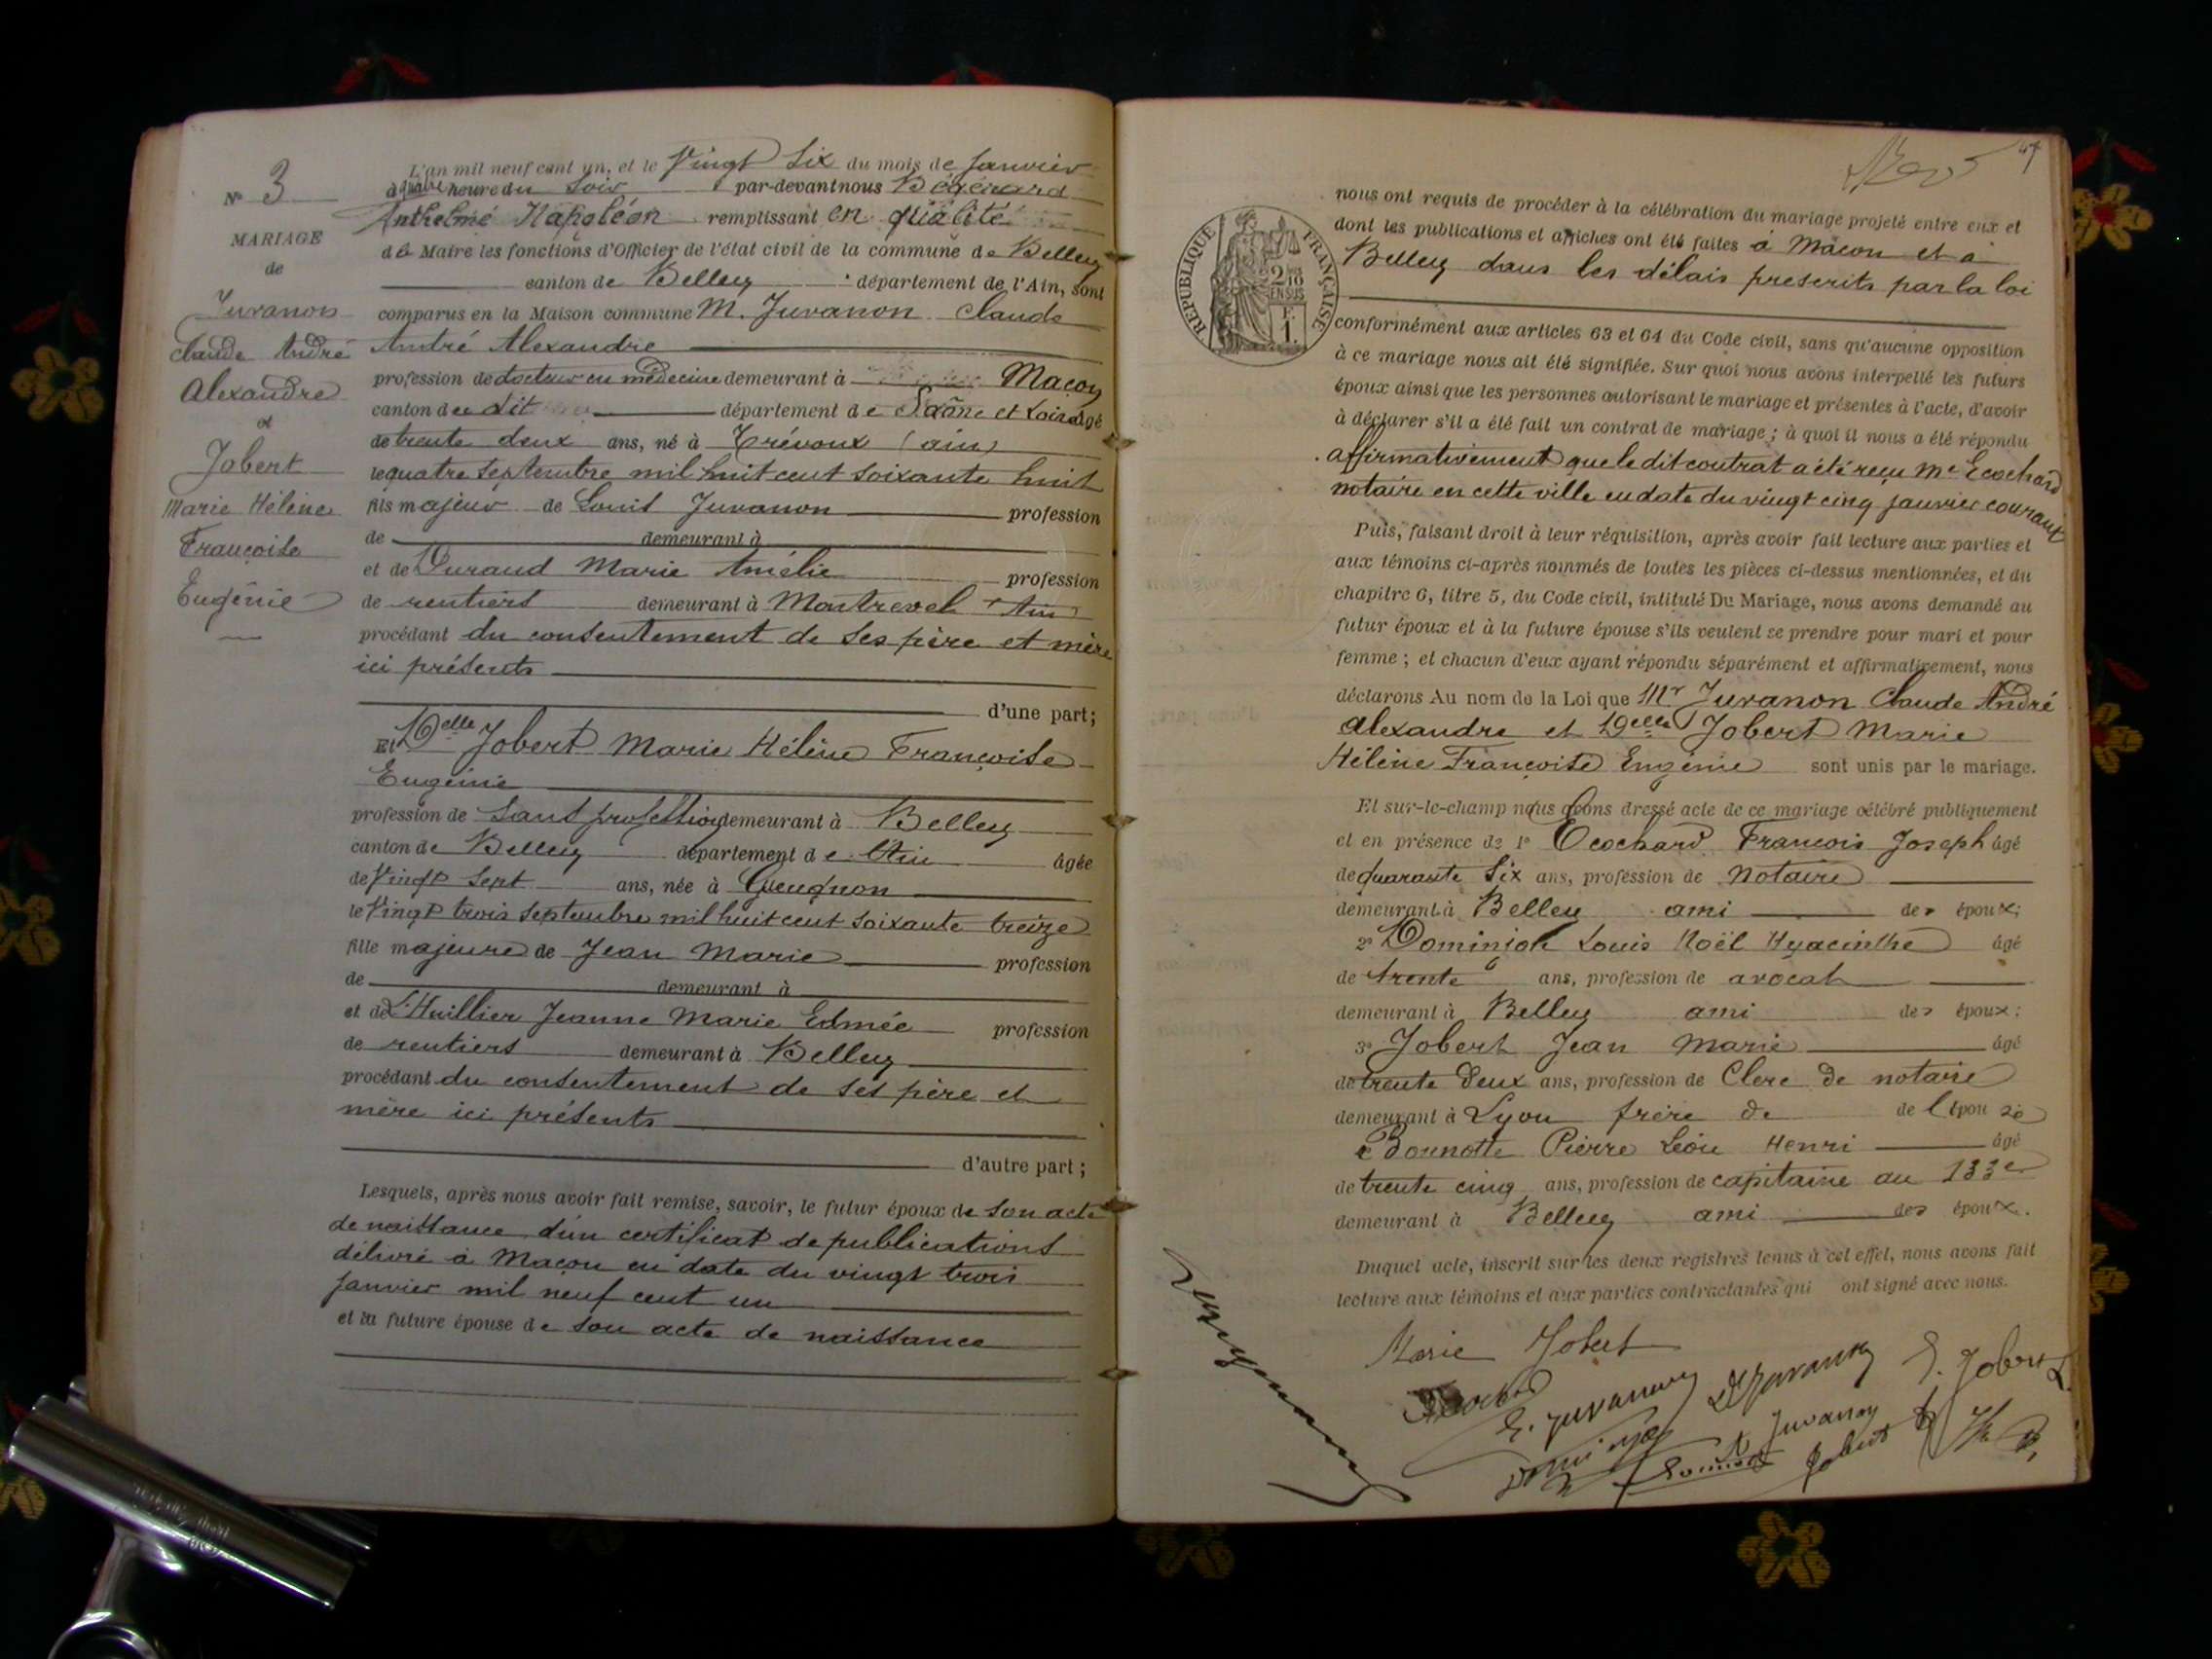 N° 3
MARIAGE
de
Juvanon
Claude André
Alexandre
et
Jobert
Marie Hélène
Françoise
Eugénie
L'an mil neuf cent un, et le Vingt Six du mois de Janvier
à quatre heure du Soir par-devant nous
Anthelme Napoléon remplissant en qualité
de Maire les fonctions d'Officier de l'état civil de la commune de Belley
canton de Belley département de l'Ain, sont
comparus en la Maison commune M. Juvanon Claude
André Alexandre
profession de docteur en médecine demeurant à Macon
canton du dit département de Saône et Loire âgé
de trente deux ans, né à Trévoux (ain)
le quatre septembre mil huit cent soixante huit
fils majeur de Louis Juvanon profession
de demeurant à
et de Durand Marie Amélie profession
de rentiers demeurant à Montrevel (Ain)
procédant du consentement de ses père et mère
ici présents
d'une part;
Et Delle Jobert Marie Hélène Françoise
Eugénie
profession de Sans profession demeurant à Belley
canton de Belley département de l'Ain âgée
de Vingt Sept ans, née à Gueugnon
le Vingt trois septembre mil huit cent soixante treize
fille majeure de Jean Marie profession
de demeurant à
et de L'Huillier Jeanne Marie Edmée profession
de rentiers demeurant à Belley
procédant du consentement de ses père et
mère ici présents
d'autre part;
Lesquels, après nous avoir fait remise, savoir, le futur époux de son acte
de naissance d'un certificat de publications
délivré à Macon en date du vingt trois
janvier mil neuf cent un
et la future épouse de son acte de naissance
47
REPUBLIQUE FRANÇAISE
2/10
EN SUS
F.
1.
nous ont requis de procéder à la célébration du mariage projeté entre eux et
dont les publications et affiches ont été faites à Mâcon et à
Belley dans les délais prescrits par la loi
conformément aux articles 63 et 64 du Code civil, sans qu'aucune opposition
à ce mariage nous ait été signifiée. Sur quoi nous avons interpellé les futurs
époux ainsi que les personnes autorisant le mariage et présentes à l'acte, d'avoir
à déclarer s'il a été fait un contrat de mariage; à quoi il nous a été répondu
affirmativement que le dit contrat a été reçu Me Ecochard
notaire en cette ville en date du vingt cinq janvier courant
Puis, faisant droit à leur réquisition, après avoir fait lecture aux parties et
aux témoins ci-après nommés de toutes les pièces ci-dessus mentionnées, et du
chapitre 6, titre 5, du Code civil, intitulé Du Mariage, nous avons demandé au
futur époux et à la future épouse s'ils veulent se prendre pour mari et pour
femme; et chacun d'eux ayant répondu séparément et affirmativement, nous
déclarons Au nom de la Loi que Mr Juvanon Claude André
Alexandre et Delle Jobert Marie
Hélène Françoise Eugénie sont unis par le mariage.
Et sur-le-champ nous avons dressé acte de ce mariage célébré publiquement
et en présence de 1° Ecochard François Joseph âgé
de quarante Six ans, profession de Notaire
demeurant à Belley ami des époux;
2° Dominjon Louis Noël Hyacinthe âgé
de trente ans, profession de avocat
demeurant à Belley ami des époux;
3° Jobert Jean Marie âgé
de trente Deux ans, profession de Clerc de notaire
demeurant à Lyon frère de de l'épouse
Bonnotte Pierre Léon Henri âgé
de trente cinq ans, profession de capitaine au 133e
demeurant à Belley ami des époux.
Duquel acte, inscrit sur les deux registres tenus à cet effet, nous avons fait
lecture aux témoins et aux parties contractantes qui ont signé avec nous.
Marie Jobert
E. Juvanon Dr Juvanon E. Jobert
Juvanon
Jobert